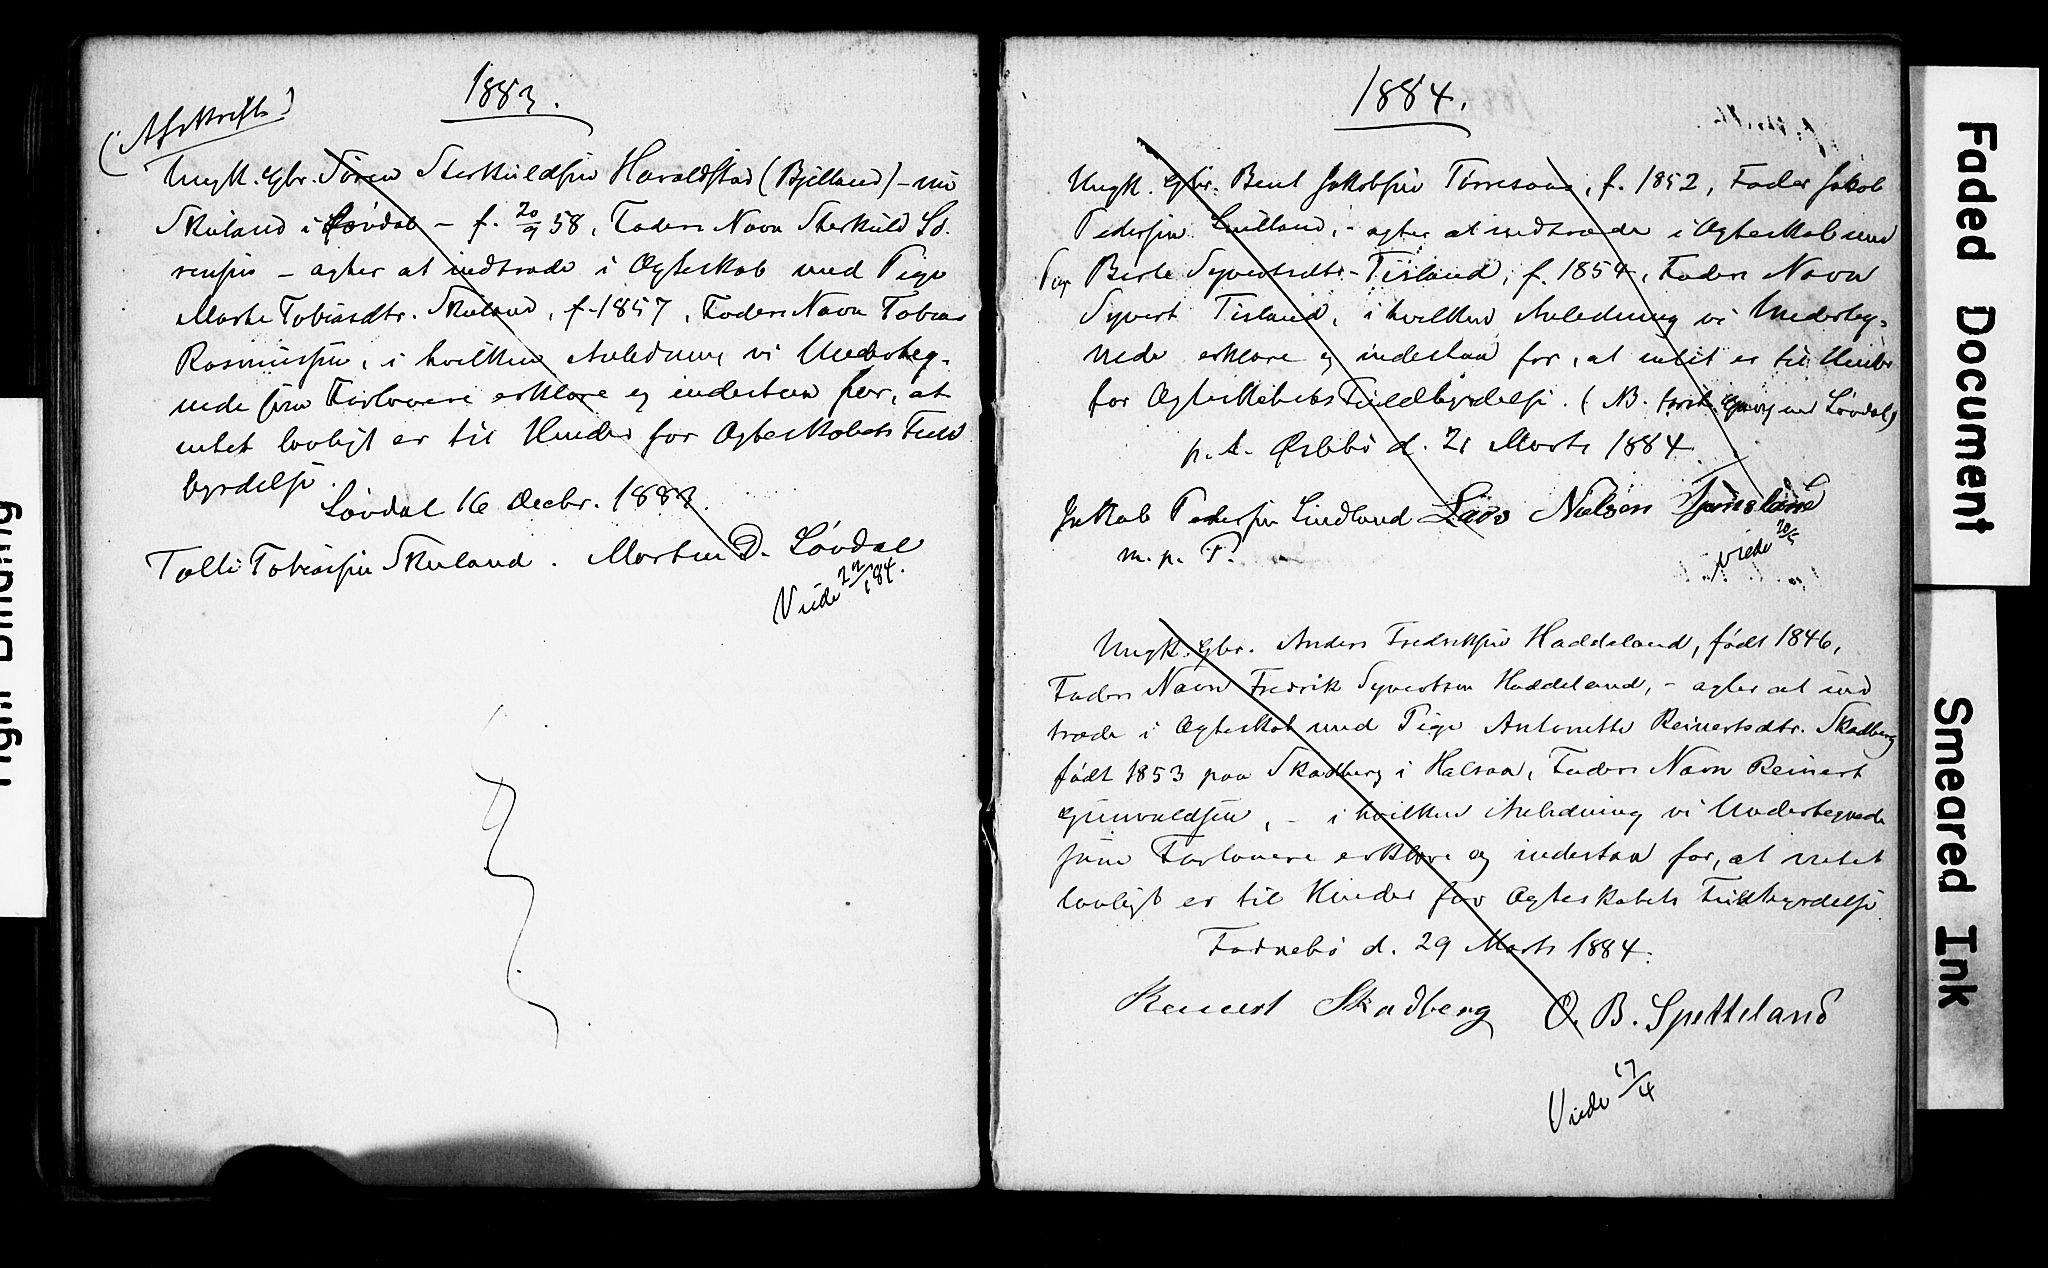 1883.
(Afskrift)
Ungk. Gbr. Søren Sterkuldsen Haraldstad (Bjelland) – nu
Skuland i Løvdal – f. 20/9 58, Faders Navn Sterkuld Sø-
rensen – agter at indtræde i Ægteskab med Pige
Marte Tobiasdtr. Skuland, f. 1857, Faders Navn Tobias
Rasmussen, i hvilken Anledning vi Underteg-
nede som Forlovere erklære og indestaa for, at
intet lovligt er til Hinder for Ægteskabets Fuld
byrdelse.
Løvdal 16 Decbr. 1883.
Tolli Tobiassen Skuland. Morten D. Løvdal
Viede 22/1 84.
1884.
Ungk. Gbr. Bent Jakobsen, f. 1852, Fader Jakob
Pedersen Lindland, – agter at indtræde i Ægteskab med
Pige Berte Syvertsdtr. Tisland, f. 1854, Faders Navn
Syvert Tisland, i hvilken Anledning vi Underteg-
nede erklære og indestaa for, at intet er til Hinder
for Ægteskabets Fuldbyrdelse. (NB. Løvdal)
p. t. Øslebø d. 21 Marts 1884
Jakob Pedersen Lindland Lars Nielsen
m. p. P.
Viede 20/5
Ungk. Gbr. Anders Fredriksen Haddeland, født 1846,
Faders Navn Fredrik Syvertsen Haddeland, – agter at ind
træde i Ægteskab med Pige Antonette Reinertsdtr. Skadberg
født 1853 paa Skadberg i Halsaa, Faders Navn Reinert
Gunvaldsen, – i hvilken Anledning vi Undertegnede
som Forlovere erklære og indestaa for, at intet
lovligt er til Hinder for Ægteskabets Fuldbyrdelse
Fodnebø d. 29 Marts 1884.
Reinert Skadberg O. B. Spetteland
Viede 17/4
Faded Document
Smeared Ink